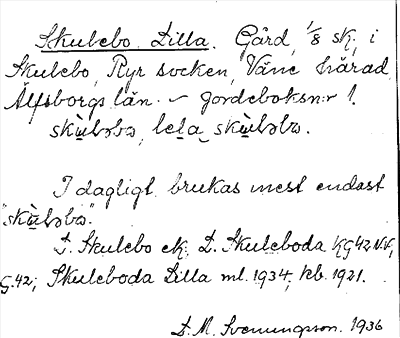 Skulebo Lilla. Gård, 1/8 sk, i
Skulebo, Ryr socken, Väne härad
Älfsborgs län. – Jordeboksn:r 1.
skùləbə, lela skùləbə.
I dagligt brukas mest endast
"skùləbə".
L. Skulebo ek, L. Skuleboda KG42 N.V,
G.42; Skuleboda Lilla ml. 1934, kb. 1921.
D. M. Svenungsson. 1936